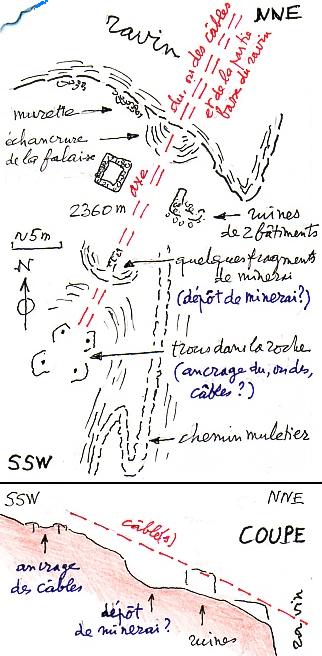 ravin
NNE
axe du, ou des câbles
et de la partie
basse du ravin
murette
échancrure
de la falaise
2360 m
ruines
de 2 bâtiments
~5m
N
quelques fragments
de minerai
(dépôt de minerai?)
trous dans la roche
(ancrage du, ou des,
câbles ?)
chemin muletier
SSW
SSW
NNE
câble(s)
COUPE
ancrage
des câbles
dépôt
de minerai?
ruines
ravin